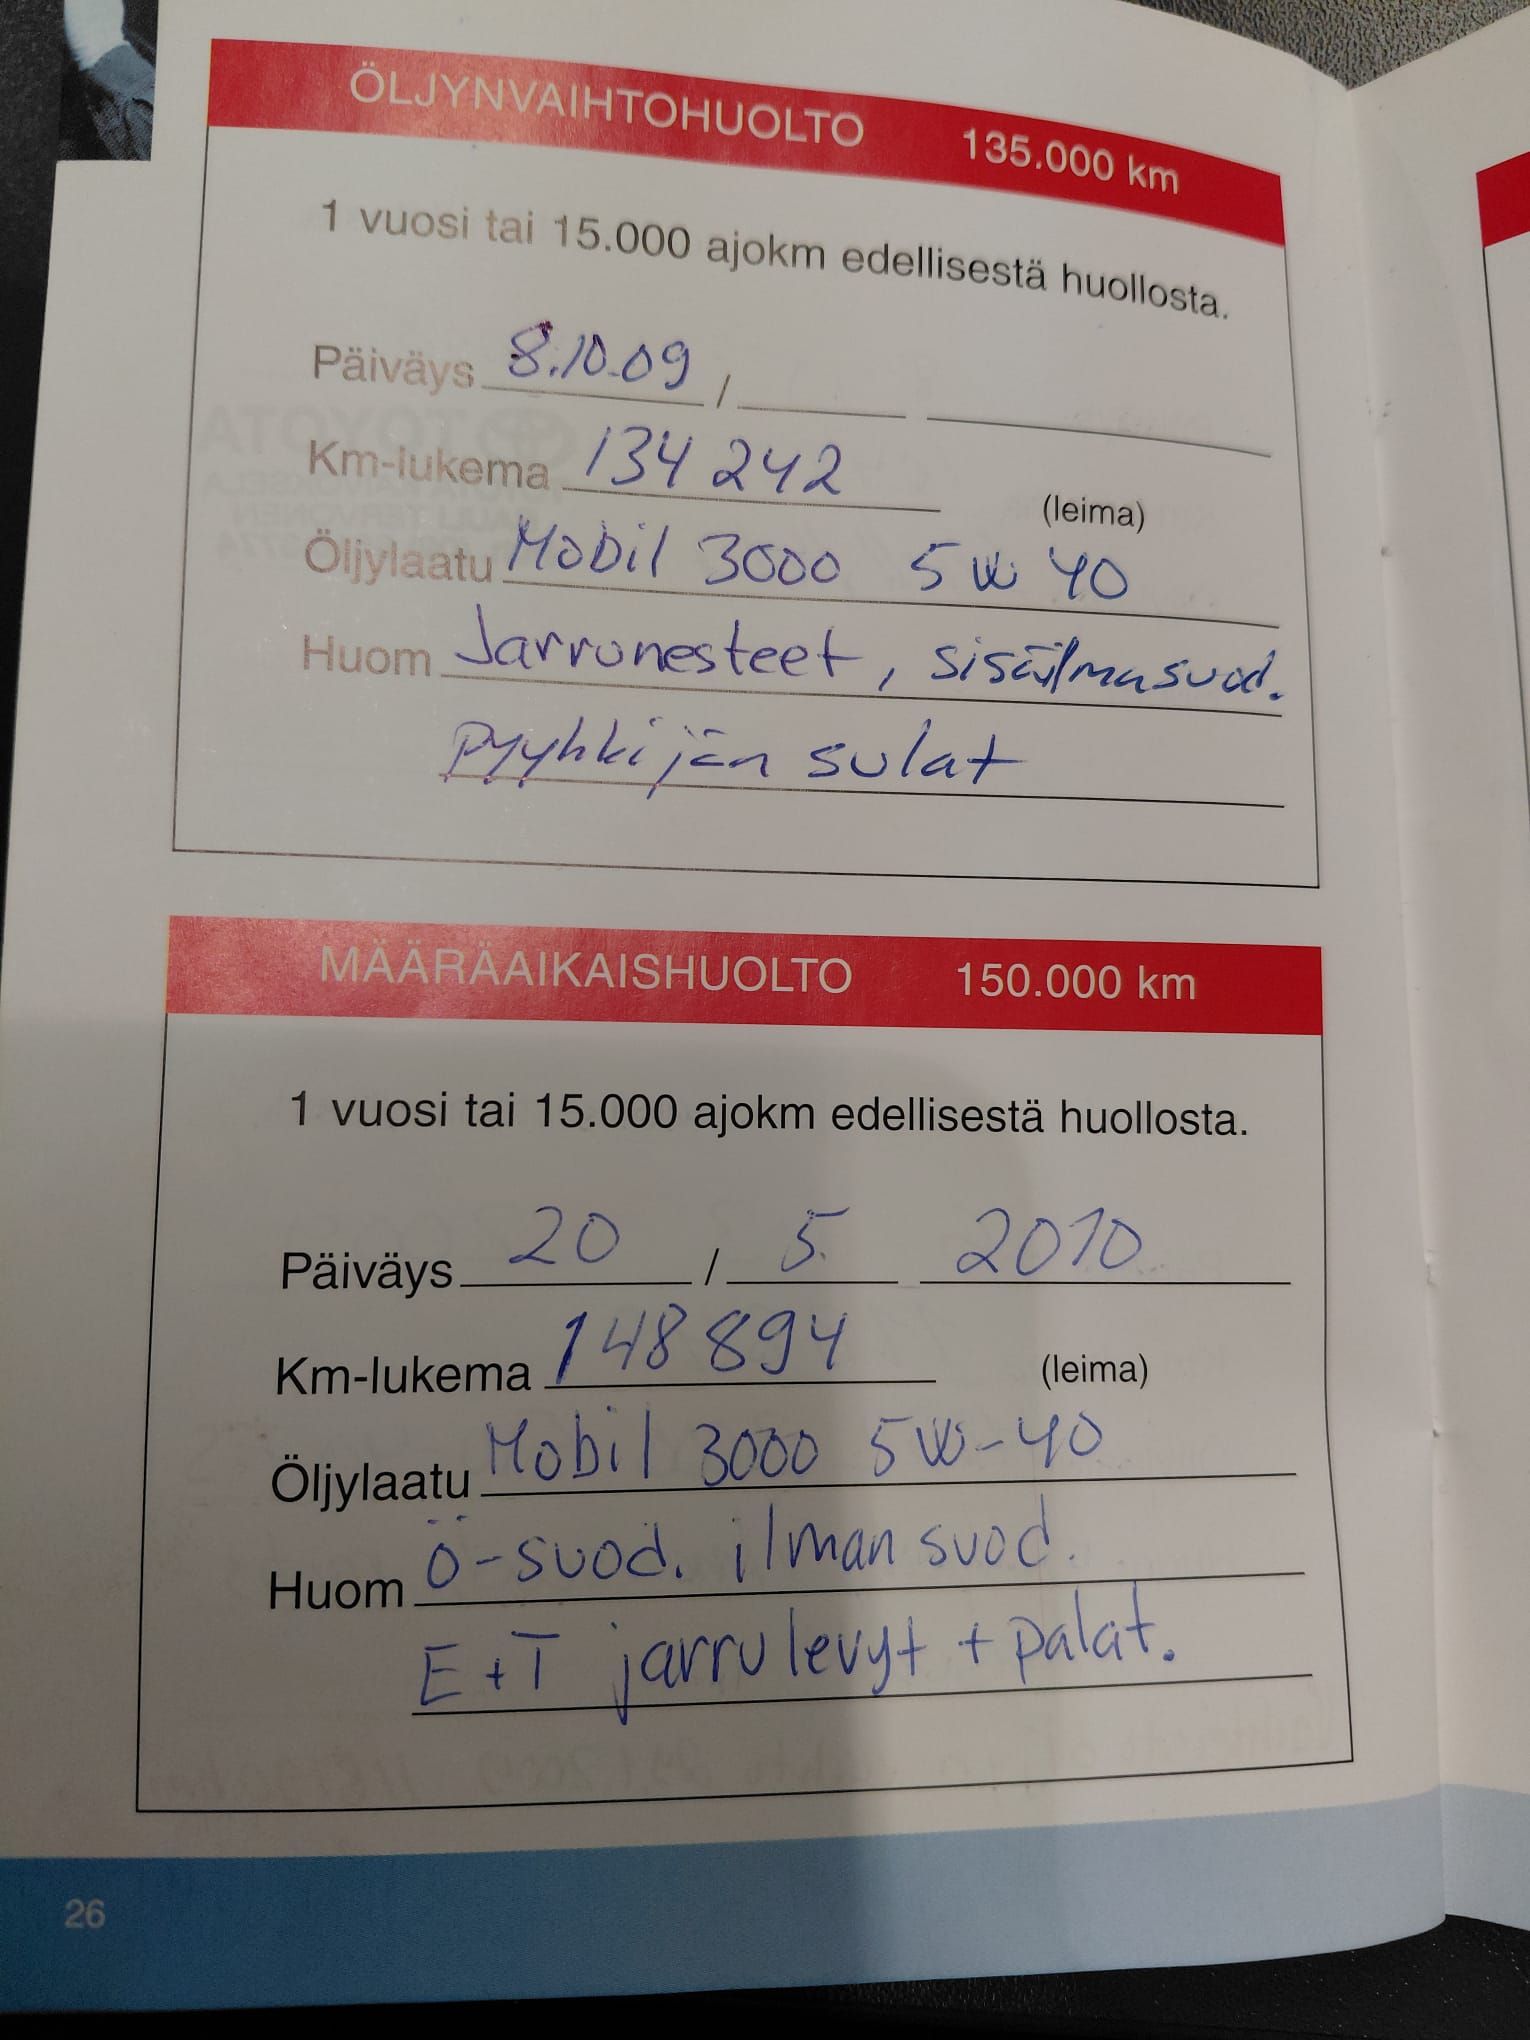 ÖLJYNVAIHTOHUOLTO 135.000 km
1 vuosi tai 15.000 ajokm edellisestä huollosta.
Päiväys 8.10.09 /
Km-lukema 134 242 (leima)
Öljylaatu Mobil 3000 5W 40
Huom Jarrunesteet, sisäilmasuod.
pyyhkijän sulat
MÄÄRÄAIKAISHUOLTO 150.000 km
1 vuosi tai 15.000 ajokm edellisestä huollosta.
Päiväys 20 / 5. 2010
Km-lukema 148 894 (leima)
Öljylaatu Mobil 3000 5W-40
Huom Ö-suod. ilman suod.
E+T jarrulevyt + palat.
26